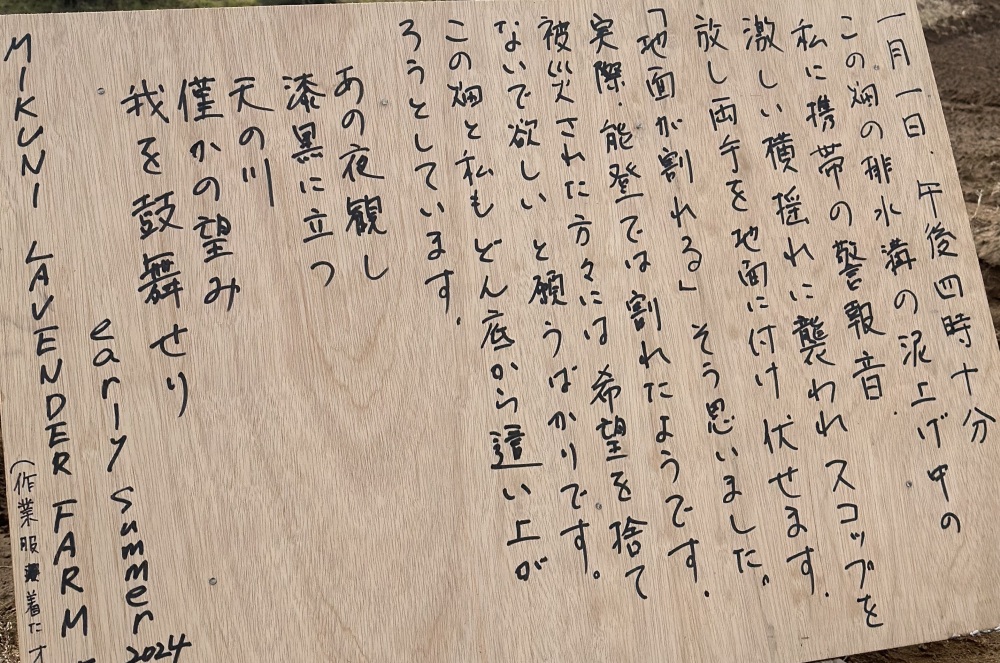 一月一日.午後四時十分
この畑の排水溝の泥上げ中の
私に携帯の警報音.
激しい横揺れに襲われスコップを
放し両手を地面に付け伏せます.
「地面が割れる」そう思いました。
実際.能登では割れたようです.
被災された方々には希望を捨て
ないで欲しいと願うばかりです。
この畑と私もどん底から這い上が
ろうとしています.
あの夜観し
漆黒に立つ
天の川
僅かの望み
我を鼓舞せり
early summer 2024
MIKUNI LAVENDER FARM
(作業服着たオ